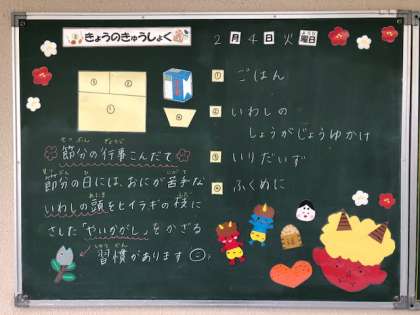 きょうのきゅうしょく
2月4日火曜日
ようび
③ ②
①
④
せつぶん ぎょうじ
節分の行事こんだて
せつぶん ひ にがて
節分の日には、おにが苦手な
あたま えだ
いわしの頭をヒイラギの枝に
さした「やいかがし」をかざる
しゅうかん
習慣があります
① ごはん
② いわしの
しょうがじょうゆかけ
③ いりだいず
④ ふくめに